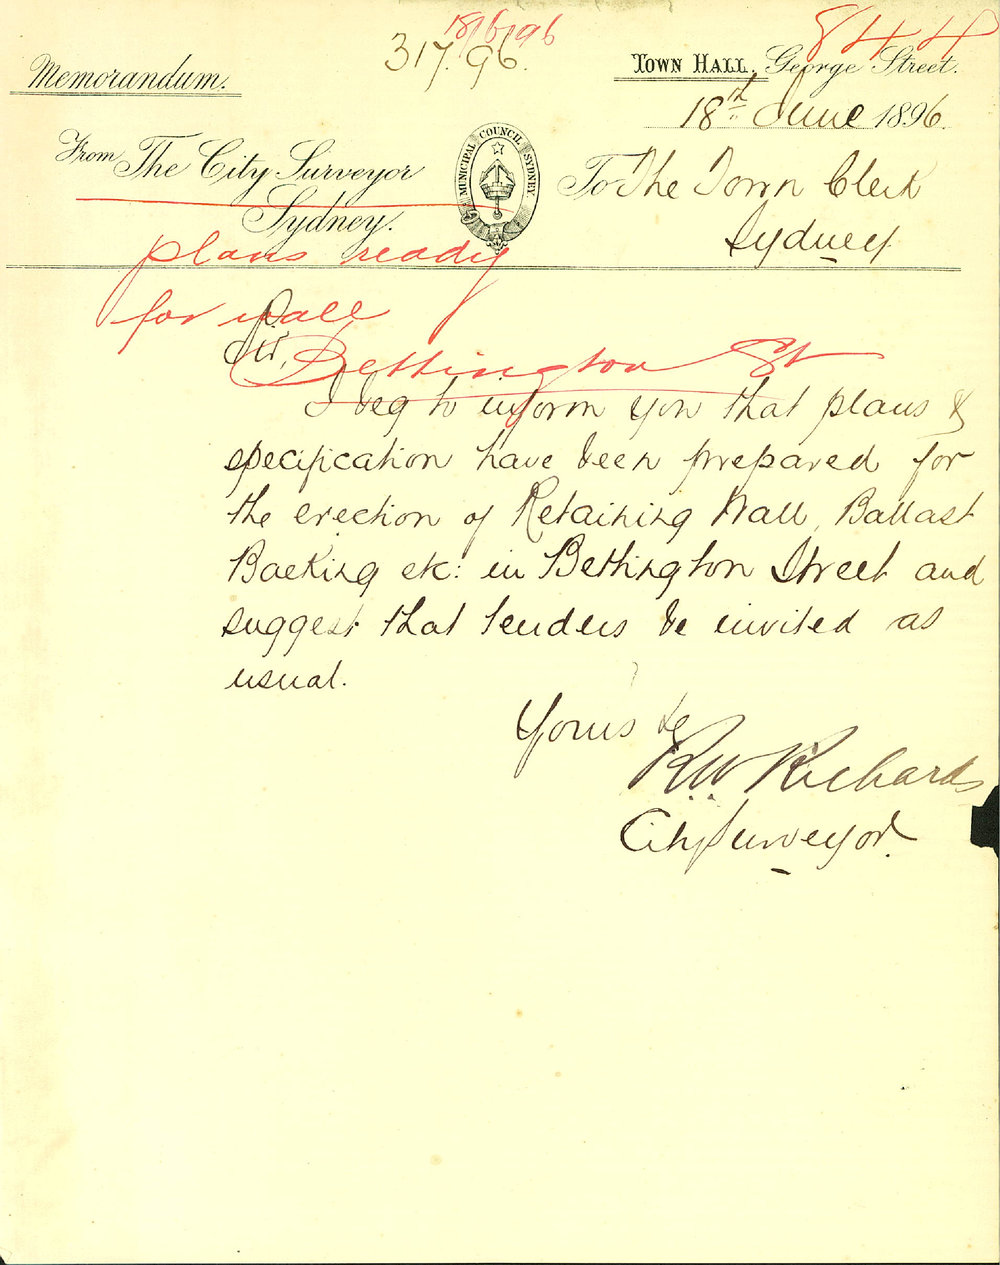 18/6/96
844
317.96.
Memorandum.
TOWN HALL. George Street.
18th June 1896.
From The City Surveyor
Sydney.
MUNICIPAL COUNCIL SYDNEY.
To The Town Clerk
Sydney
plans ready
for wall
Bettington St
Sir,
I beg to inform you that plans &
specification have been prepared for
the erection of Retaining Wall, Ballast
Backing etc: in Bettington Street and
suggest that tenders be invited as
usual.
Yours &c
R.W. Richards
City Surveyor.